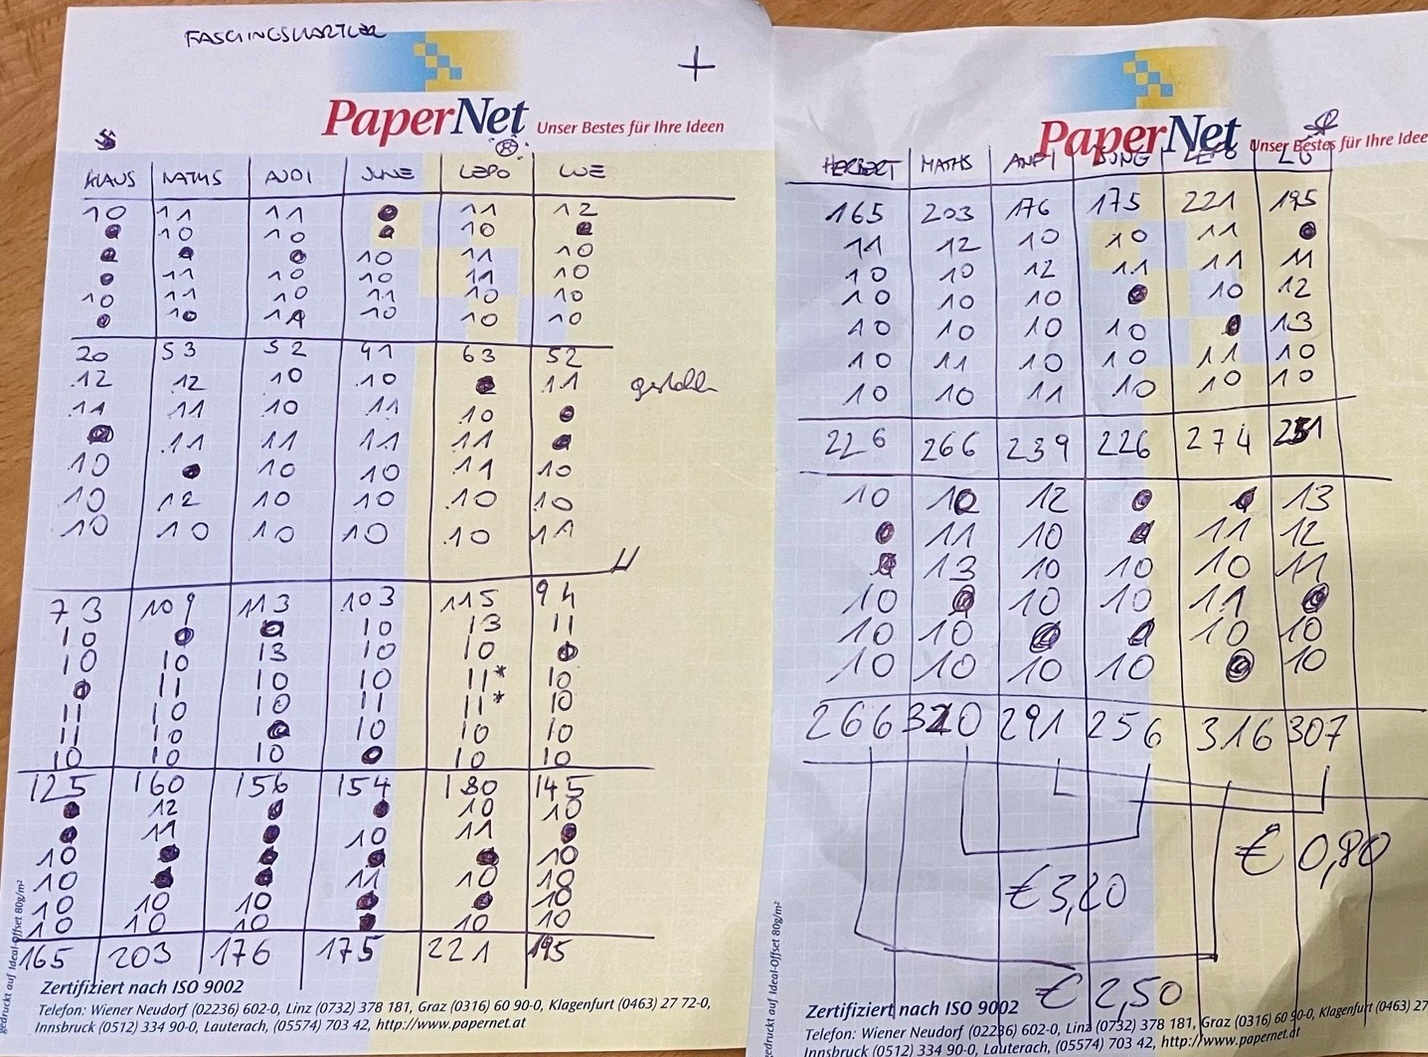 FASCHINGSKARTLER
+
PaperNet Unser Bestes für Ihre Ideen
KLAUS MATHS ANDI JUNE LEPO LUE
10 11 11 ● 11 12
● 10 10 ● 10 ●
● ● ● 10 11 10
● 11 10 10 11 10
10 11 10 11 10 10
● 10 11 10 10 10
20 53 52 41 63 52
12 12 10 10 ● 11
11 11 10 11 10 ●
● 11 11 11 11 ●
10 ● 10 10 11 10
10 12 10 10 10 10
10 10 10 10 10 11
73 109 113 103 115 94
10 ● ● 10 13 11
10 10 13 10 10 ●
● 11 10 10 11* 10
11 10 10 11 11* 10
11 10 ● 10 10 10
10 10 10 ● 10 10
125 160 156 154 180 145
● 12 ● ● 10 10
● 11 ● 10 11 ●
10 ● ● ● ● 10
10 ● ● 11 10 10
10 10 10 ● ● 10
10 10 10 ● 10 10
165 203 176 175 221 195
Zertifiziert nach ISO 9002
Telefon: Wiener Neudorf (02236) 602-0, Linz (0732) 378 181, Graz (0316) 60 90-0, Klagenfurt (0463) 27 72-0,
Innsbruck (0512) 334 90-0, Lauterach, (05574) 703 42, http://www.papernet.at
gedruckt auf Ideal-Offset 80g/m²
PaperNet Unser Bestes für Ihre Idee
HERBERT MATHS ANDI JUNG LEPO LÜ
165 203 176 175 221 195
11 12 10 10 11 ●
10 10 12 11 11 11
10 10 10 ● 10 12
10 10 10 10 ● 13
10 11 10 10 11 10
10 10 11 10 10 10
226 266 239 226 274 251
10 10 12 ● ● 13
● 11 10 ● 11 12
● 13 10 10 10 11
10 ● 10 10 11 ●
10 10 ● ● 10 10
10 10 10 10 ● 10
266 320 291 256 316 307
€ 0,80
€ 3,20
€ 2,50
Zertifiziert nach ISO 9002
Telefon: Wiener Neudorf (02236) 602-0, Linz (0732) 378 181, Graz (0316) 60 90-0, Klagenfurt (0463) 27
Innsbruck (0512) 334 90-0, Lauterach, (05574) 703 42, http://www.papernet.at
gedruckt auf Ideal-Offset 80g/m²